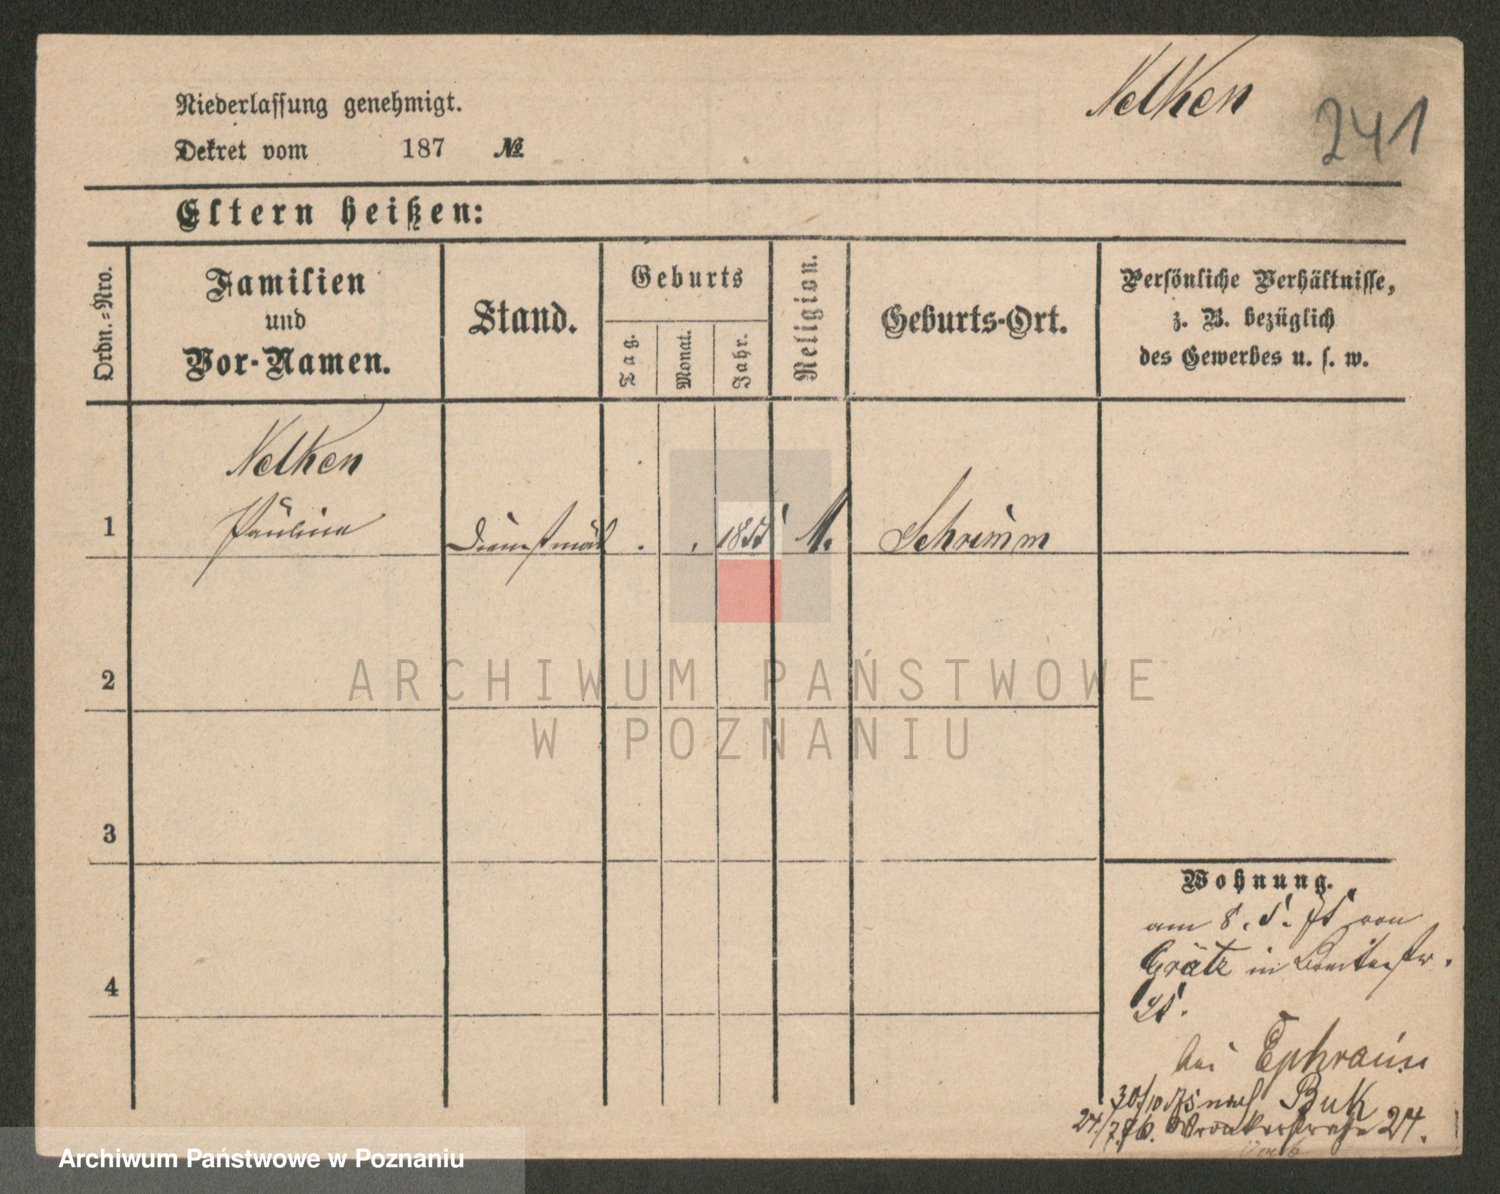 Nelken
241
Niederlassung genehmigt.
Dekret vom 187 №
Eltern heißen:
Ordn.-Nro.
Familien
und
Vor-Namen.
Stand.
Geburts
Tag.
Monat.
Jahr.
Religion.
Geburts-Ort.
Persönliche Verhältnisse,
z. B. bezüglich
des Gewerbes u. s. w.
Nelken
1 Pauline Dienstmäd . . 1855 M. Schrimm
2
3
4
Wohnung.
am 8. 5. 75 von
Grätz in Breitestr.
25.
bei Ephraim
30/10 75 nach Buk
24/7 76. Wronkerstraße 24.
ARCHIWUM PAŃSTWOWE
W POZNANIU
Archiwum Państwowe w Poznaniu